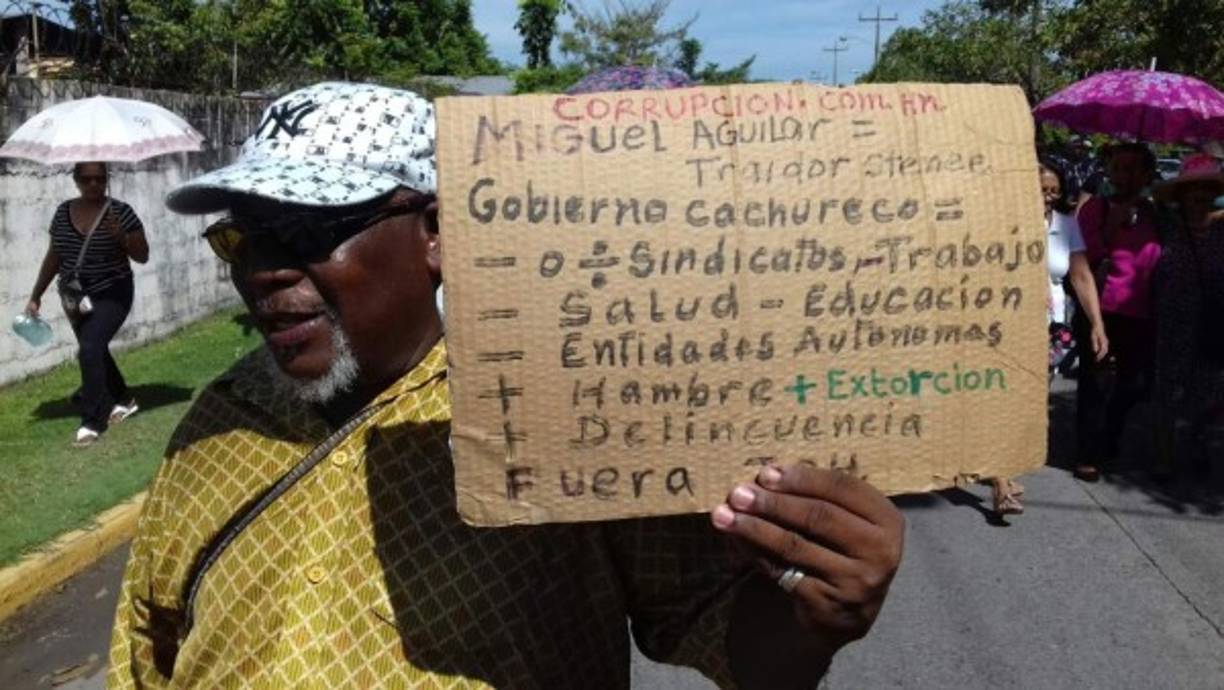 NY
CORRUPCION. com.Hn
MIGUEL AGUILAR =
Traidor Stenee
Gobierno cachureco =
= 0 ÷ Sindicatos,-Trabajo
= Salud - Educacion
= Entidades Autonomas
+ Hambre + Extorcion
+ Delincuencia
Fuera JOH